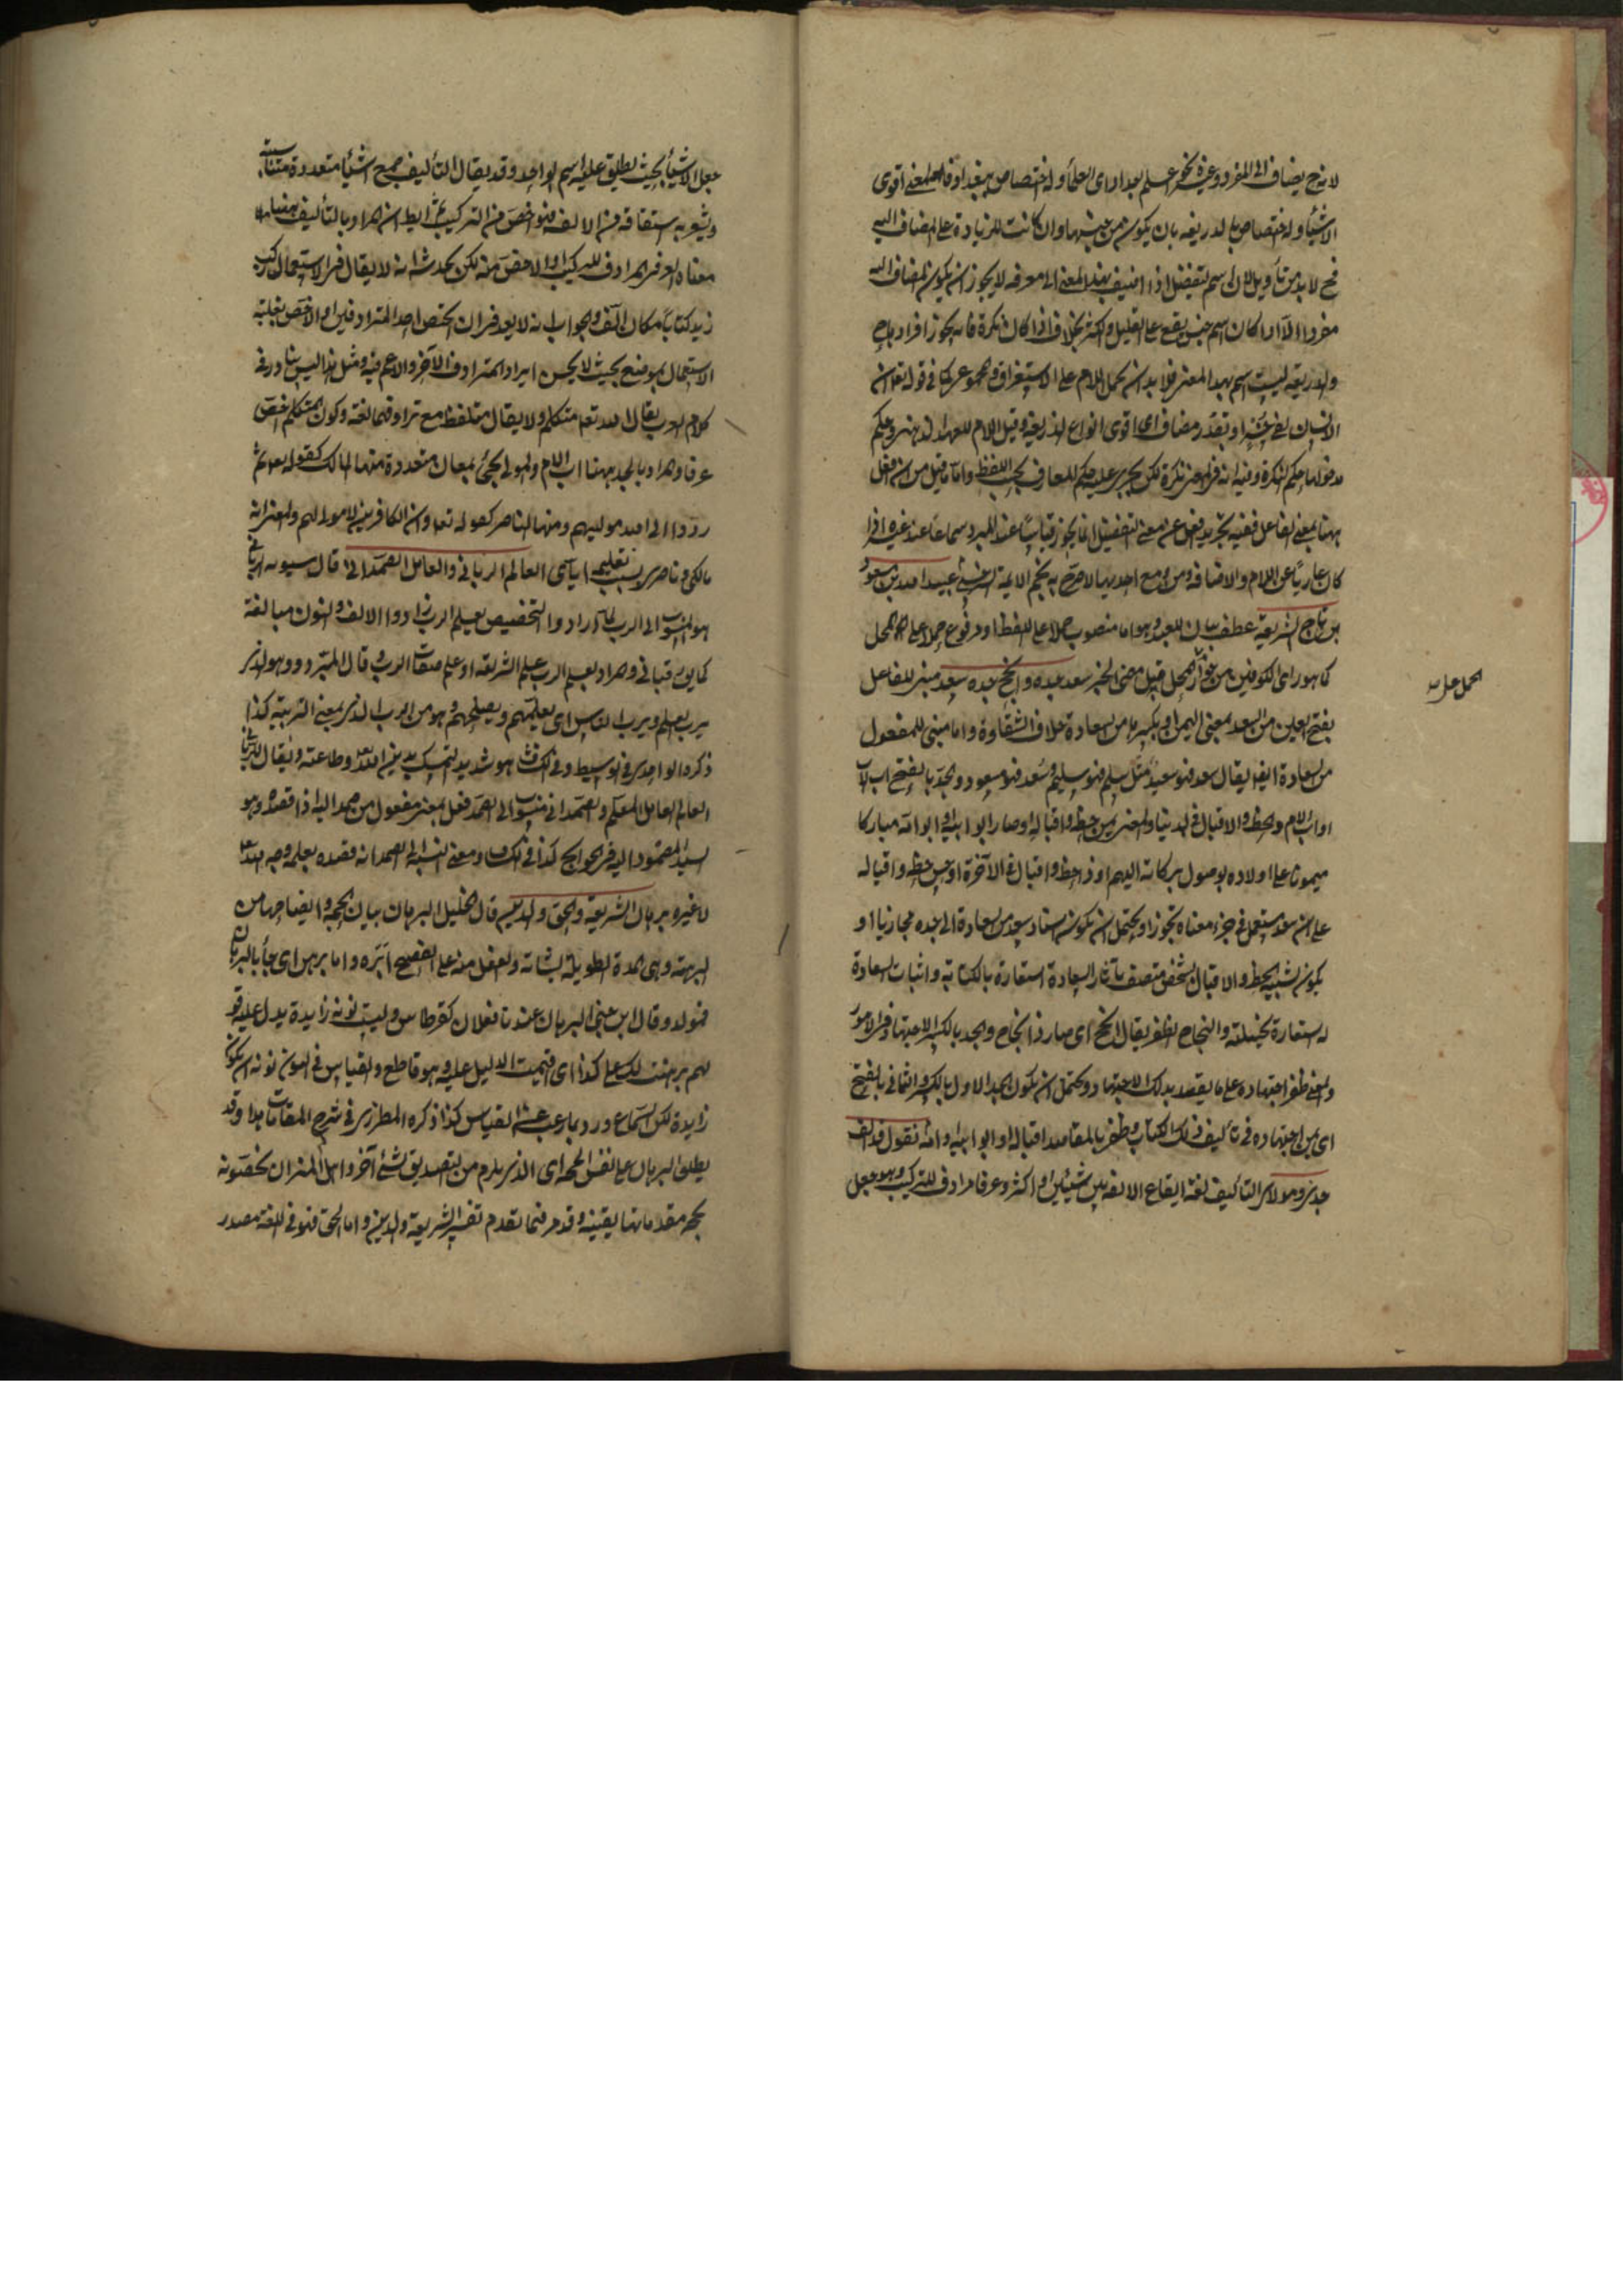 لانه ح يضاف الى المفرد وغيره نحو اعلم بغداد اى العلماء وله اختصاص ببغداد فالمعنى اقوى
الاشياء وله اختصاص بالذريعة بان يكون من جنسها وان كانت للزيادة على المضاف اليه
فح لا بد من تأويل لان اسم التفضيل اذا اضيف بهذا المعنى الى معرفة لا يجوز ان يكون المضاف اليه
مفردا الا اذا كان اسم جنس يقع على القليل والكثير بخلاف اذا كان نكرة فانه يجوز افراده
والذريعة ليست اسم بهذا المعنى فلا بد ان يحمل اللام على الاستغراق كما فى قوله تعالى ان
الانسان لفى خسر او تقدر مضاف اى اقوى انواع الذريعة وقيل اللام للعهد الذهنى وحكم
مدخولها حكم النكرة وفيه انه فى المعنى نكرة لكن يجرى عليه حكم المعارف بحسب اللفظ واما ما قيل من ان افعل
ههنا بمعنى الفاعل ففيه تجريد افعل عن معنى التفضيل انما يجوز قياسا عند المبرد سماعا عند غيره اذا
كان عاريا عن اللام والاضافة ومن مع احديها لا صرح به نجم الائمة عبيد الله بن مسعود
بن تاج الشريعة عطف بيان للعبد وهو اما منصوب حملا على اللفظ او مرفوع حملا على المحل
كما هو راى الكوفيين من جواز المحل قبل مضى الخبر سعد جده وانجح جده سعد مبنى للفاعل
بفتح العين من السعد بمعنى اليمن او بكسرها من السعادة خلاف الشقاوة واما مبنى للمفعول
من السعادة ايضا يقال سعد فهو سعيد مثل سلم فهو سليم وسعد فهو مسعود والجد بالفتح اب الاب
او اب الام والحظ والاقبال فى الدنيا والمعنى يمن حظه واقباله او صار ابو ابيه او ابو امه مباركا
ميمونا على اولاده بوصول بركاته اليهم او ذا حظ واقبال فى الآخرة او حسن حظه واقباله
على ان سعد مستعمل فى جزء معناه تجوزا ويحتمل ان يكون اسناد سعد من السعادة الى جده مجازيا او
يكون تشبيه الحظ والاقبال بشخص متصف بآثار السعادة استعارة بالكناية واثبات السعادة
له استعارة تخييلية والنجاح الظفر يقال انجح اى صار ذا نجاح والجد بالكسر الاجتهاد فى الامور
والمعنى ظفر اجتهاده على ما يقصد بذلك الاجتهاد ويحتمل ان يكون الجد الاول بالكسر والثانى بالفتح
اى يمن اجتهاده فى تأليف ذلك الكتاب وظفر بالمقاصد اقباله او ابو ابيه او امه نقول قد الف
جدى ومولاى التأليف لغة ايقاع الالفة بين شيئين او اكثر وعرفا مرادف للتركيب وهو جعل
الحمل على
جعل الاشياء بحيث يطلق عليه اسم الواحد وقد يقال التأليف جمع اشياء متعددة متناسبة
ويشعر به اشتقاقه من الالفة فهو اخص من التركيب ثم الظاهر ان المراد بالتأليف ههنا
معناه العرفى المرادف للتركيب او الاخص منه لكن يخدشه انه لا يقال فى الاستعمال ركب
زيد كتابا مكان الف والجواب انه لا يعد فى ان يختص احد المترادفين او الاخص بغلبة
الاستعمال بموضع بحيث لا يحسن ايراد المترادف الآخر والاعم فيه ومثل هذا ليس بنادر فى
كلام العرب يقال الله تعالى متكلم ولا يقال متلفظ مع ترادفهما لغة وكون المتكلم اخص
عرفا والمراد بالجد ههنا اب الام والمولى يجئ بمعان متعددة منها المالك كقوله تعالى ثم
ردوا الى الله موليهم ومنها الناصر كقوله تعالى وان الكافرين لا مولى لهم والمعنى انه
مالكى وناصرى بسبب تعليمه اياى العالم الربانى والعامل الصمدانى قال سيبويه الربانى
هو المنسوب الى الرب لما ارادوا التخصيص بعلم الرب زادوا الالف والنون مبالغة
كما يقال رقبانى والمراد بعلم الرب علم الشريعة او علم صفات الرب وقال المبرد وهو الذى
يرب العلم ويرب الناس اى يعلمهم ويصلحهم وهو من الرب الذى بمعنى التربية كذا
ذكره الواحدى فى الوسيط وفى الكشاف هو شديد التمسك بدين الله تعالى وطاعته ويقال الربانى
العالم العامل المعلم والصمدانى منسوب الى الصمد فعل بمعنى مفعول من صمد اليه اذا قصده وهو
السيد المصمود اليه فى الحوائج كذا فى الكشاف ومعنى النسبة الى الصمد انه قصده بعلمه وجه الله تعالى
لا غيره برهان الشريعة والحق والدين قال الخليل البرهان بيان الحجة وايضاحها من
البرهة وهى المدة الطويلة لشأنه والفعل منه على الفصيح ابره واما برهن اى جاء بالبرهان
فمولد وقال ابن جنى البرهان عندنا فعلان كقرطاس وليست نونه زائدة يدل عليه قو
لهم برهنت لك على كذا اى اقمت الدليل عليه وهو قاطع والقياس فى النون نونه ان تكون
زائدة لكن السماع ورد بما رغب عنه القياس كذا ذكره المطرزى فى شرح المقامات هذا وقد
يطلق البرهان على نفس الحجة اى الذى يلزم من التصديق لشئ آخر واهل الميزان يخصونه
بحجة مقدماتها يقينية وقد مر فيما تقدم تفسير الشريعة والدين واما الحق فهو فى اللغة مصدر